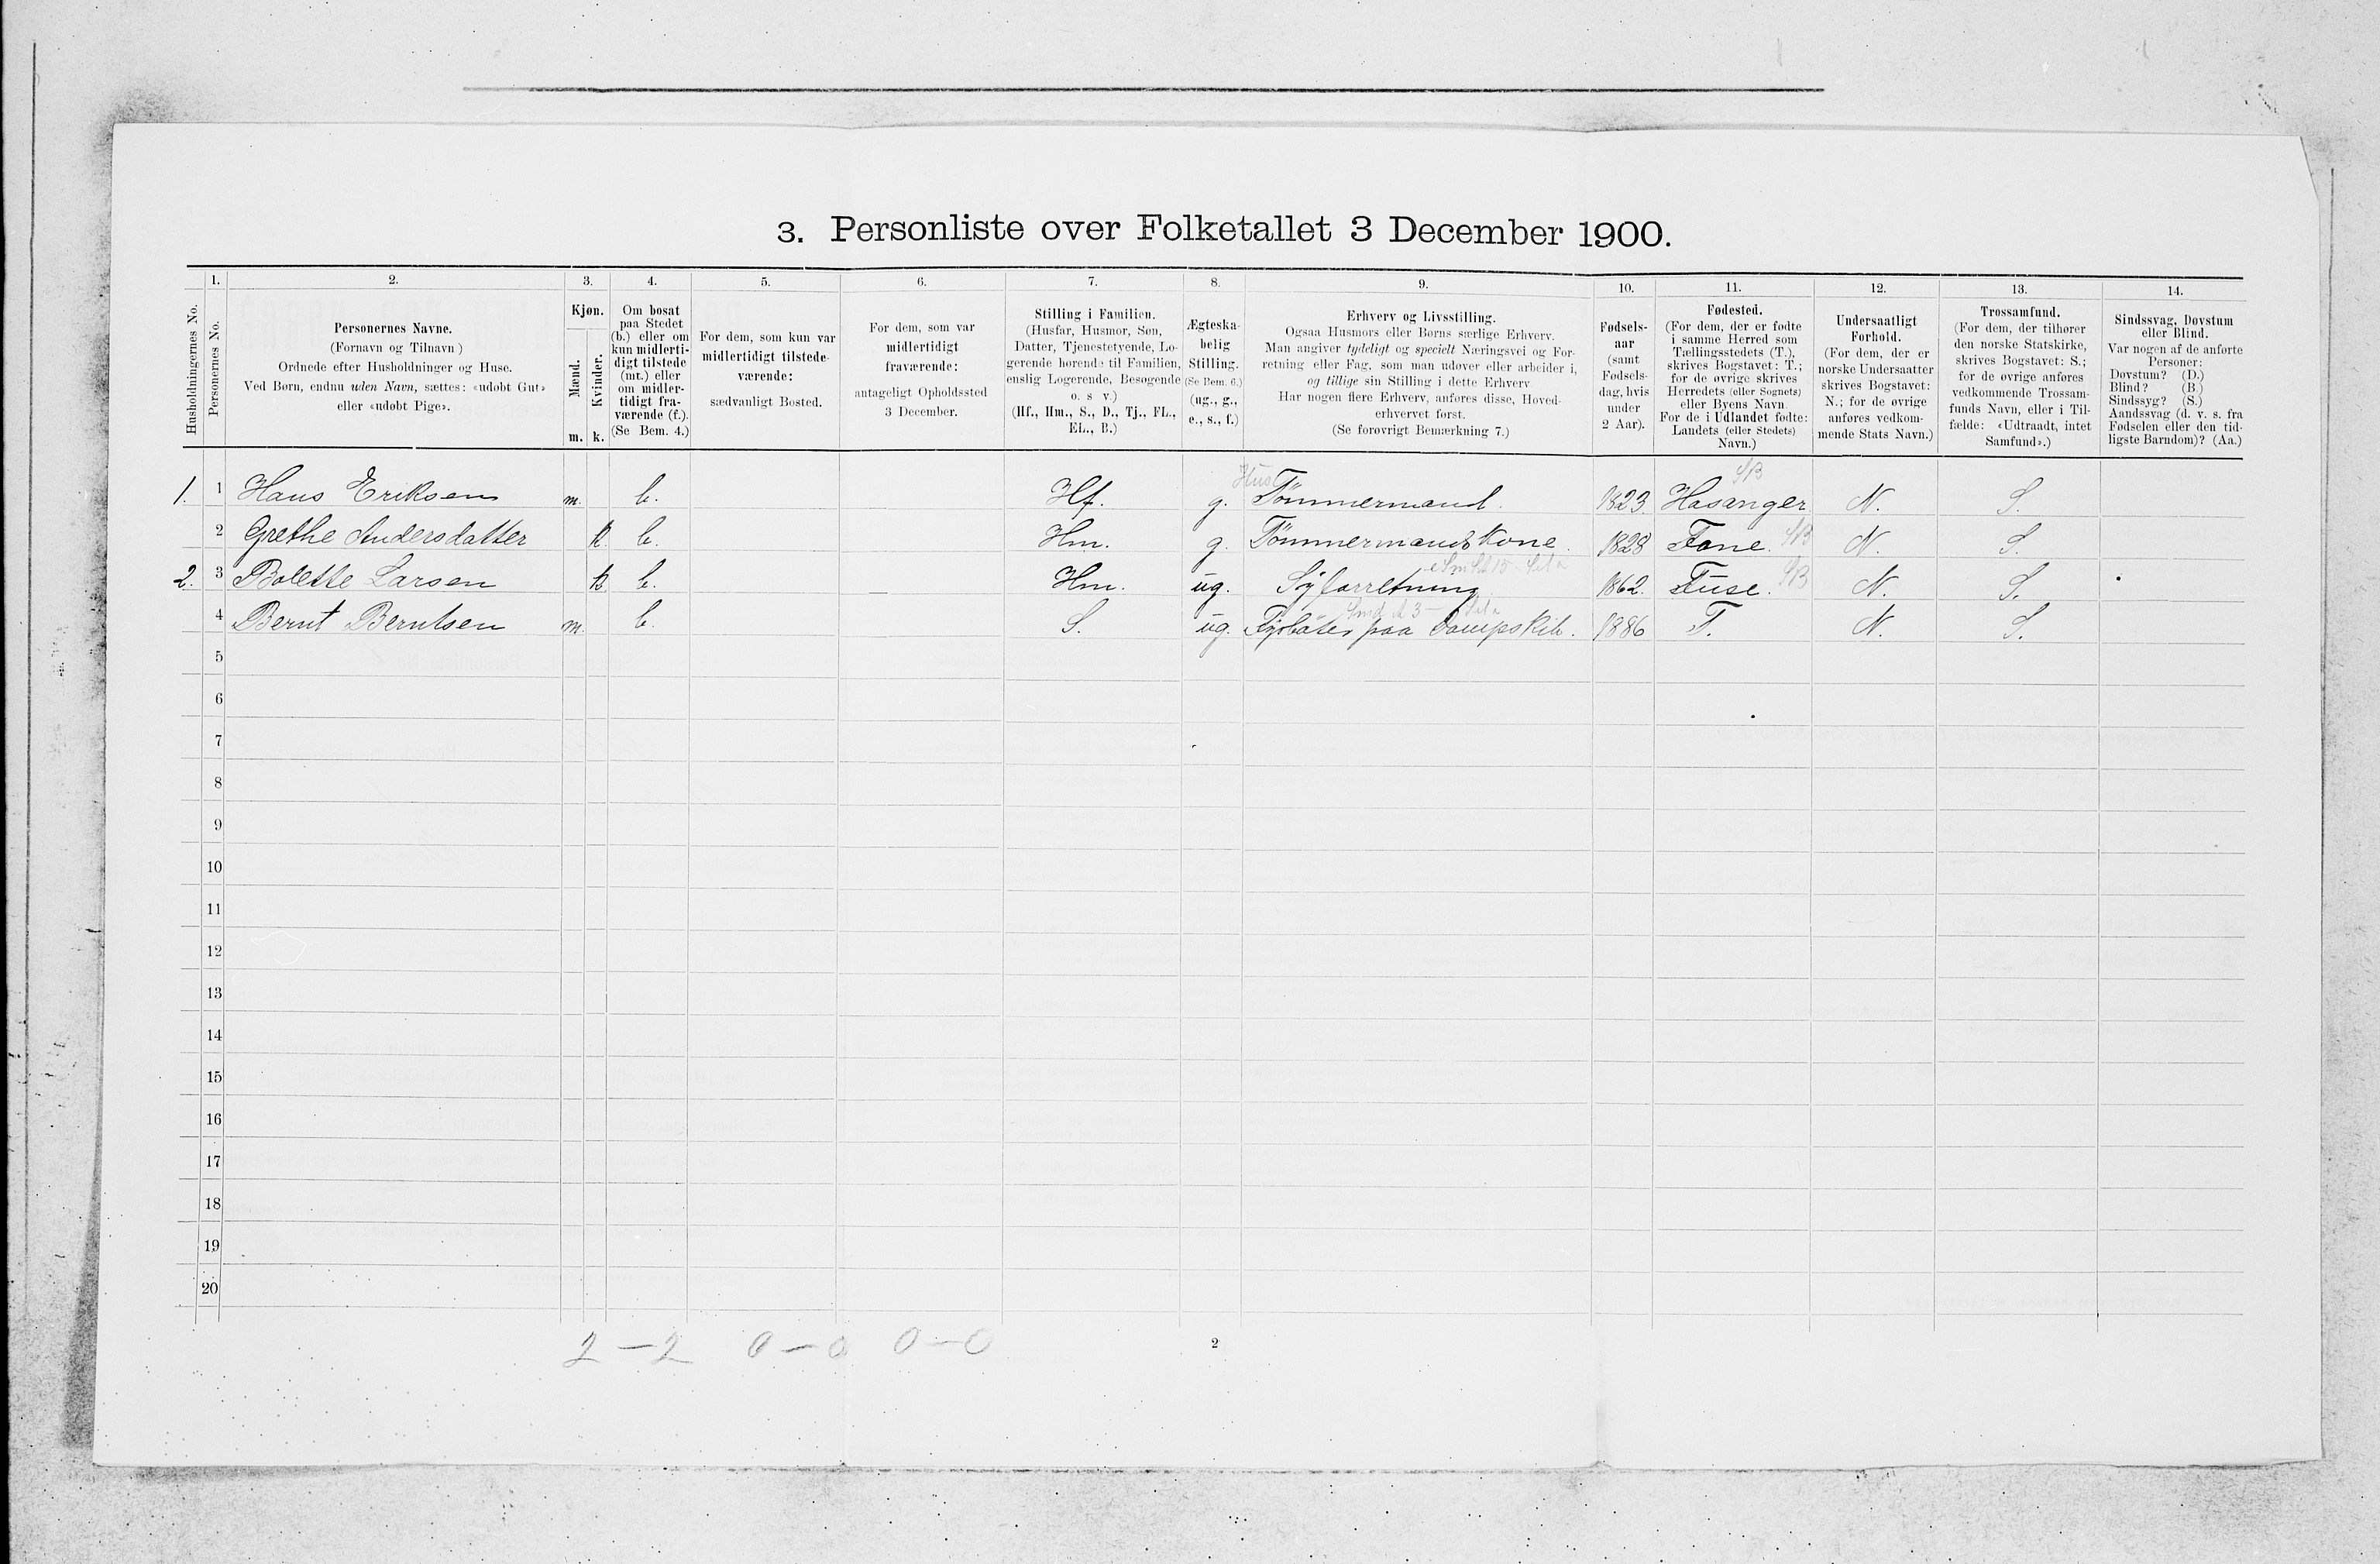 3. Personliste over Folketallet 3 December 1900.
1. 2. 3. 4. 5. 6. 7. 8. 9. 10. 11. 12. 13. 14.
Husholdningernes No.
Personernes No.
Personernes Navne.
(Fornavn og Tilnavn)
Ordnede efter Husholdninger og Huse.
Ved Børn, endnu uden Navn, sættes: «udøbt Gut»
eller «udøbt Pige».
Kjøn.
Mænd.
Kvinder.
m. k.
Om bosat
paa Stedet
(b.) eller om
kun midlerti-
digt tilstede
(mt.) eller
om midler-
tidigt fra-
værende (f.).
(Se Bem. 4.)
For dem, som kun var
midlertidigt tilstede-
værende:
sædvanligt Bosted.
For dem, som var
midlertidigt
fraværende:
antageligt Opholdssted
3 December.
Stilling i Familien.
(Husfar, Husmor, Søn,
Datter, Tjenestetyende, Lo-
gerende hørende til Familien,
enslig Logerende, Besøgende
o. s v.)
(Hf., Hm., S., D., Tj., FL.,
EL., B.)
Ægteska-
belig
Stilling.
(Se Bem. 6.)
(ug., g.,
e., s., f.)
Erhverv og Livsstilling.
Ogsaa Husmors eller Børns særlige Erhverv.
Man angiver tydeligt og specielt Næringsvei og For-
retning eller Fag, som man udøver eller arbeider i,
og tillige sin Stilling i dette Erhverv
Har nogen flere Erhverv, anføres disse, Hoved-
erhvervet først.
(Se forøvrigt Bemærkning 7.)
Fødsels-
aar
(samt
Fødsels-
dag, hvis
under
2 Aar).
Fødested.
(For dem, der er fødte
i samme Herred som
Tællingsstedets (T.),
skrives Bogstavet: T.;
for de øvrige skrives
Herredets (eller Sognets)
eller Byens Navn.
For de i Udlandet fødte:
Landets (eller Stedets)
Navn.)
Undersaatligt
Forhold.
(For dem, der er
norske Undersaatter
skrives Bogstavet:
N.; for de øvrige
anføres vedkom-
mende Stats Navn.)
Trossamfund.
(For dem, der tilhører
den norske Statskirke,
skrives Bogstavet: S.;
for de øvrige anføres
vedkommende Trossam-
funds Navn, eller i Til-
fælde: «Udtraadt, intet
Samfund».)
Sindssvag, Døvstum
eller Blind.
Var nogen af de anførte
Personer:
Døvstum? (D.)
Blind? (B.)
Sindssyg? (S.)
Aandssvag (d. v. s. fra
Fødselen eller den tid-
ligste Barndom)? (Aa.)
Hus SB
1. 1 Hans Eriksen m. b. Hf. g. Tömmermand. 1823. Hosanger N. S.
2 Grethe Andersdatter k. b. Hm. g. Tömmermands Kone. 1828 Fane. SB N. S.
2. 3 Bolette Larsen k. b. Hm. ug. Syforretning 1862. Fuse. SB N. S.
4 Bernt Berntsen m. b. S. ug. Fyrböter paa Dampskib. 1886 T. N. S.
5
6
7
8
9
10
11
12
13
14
15
16
17
18
19
20
2 – 2 0 – 0 0 – 0
2